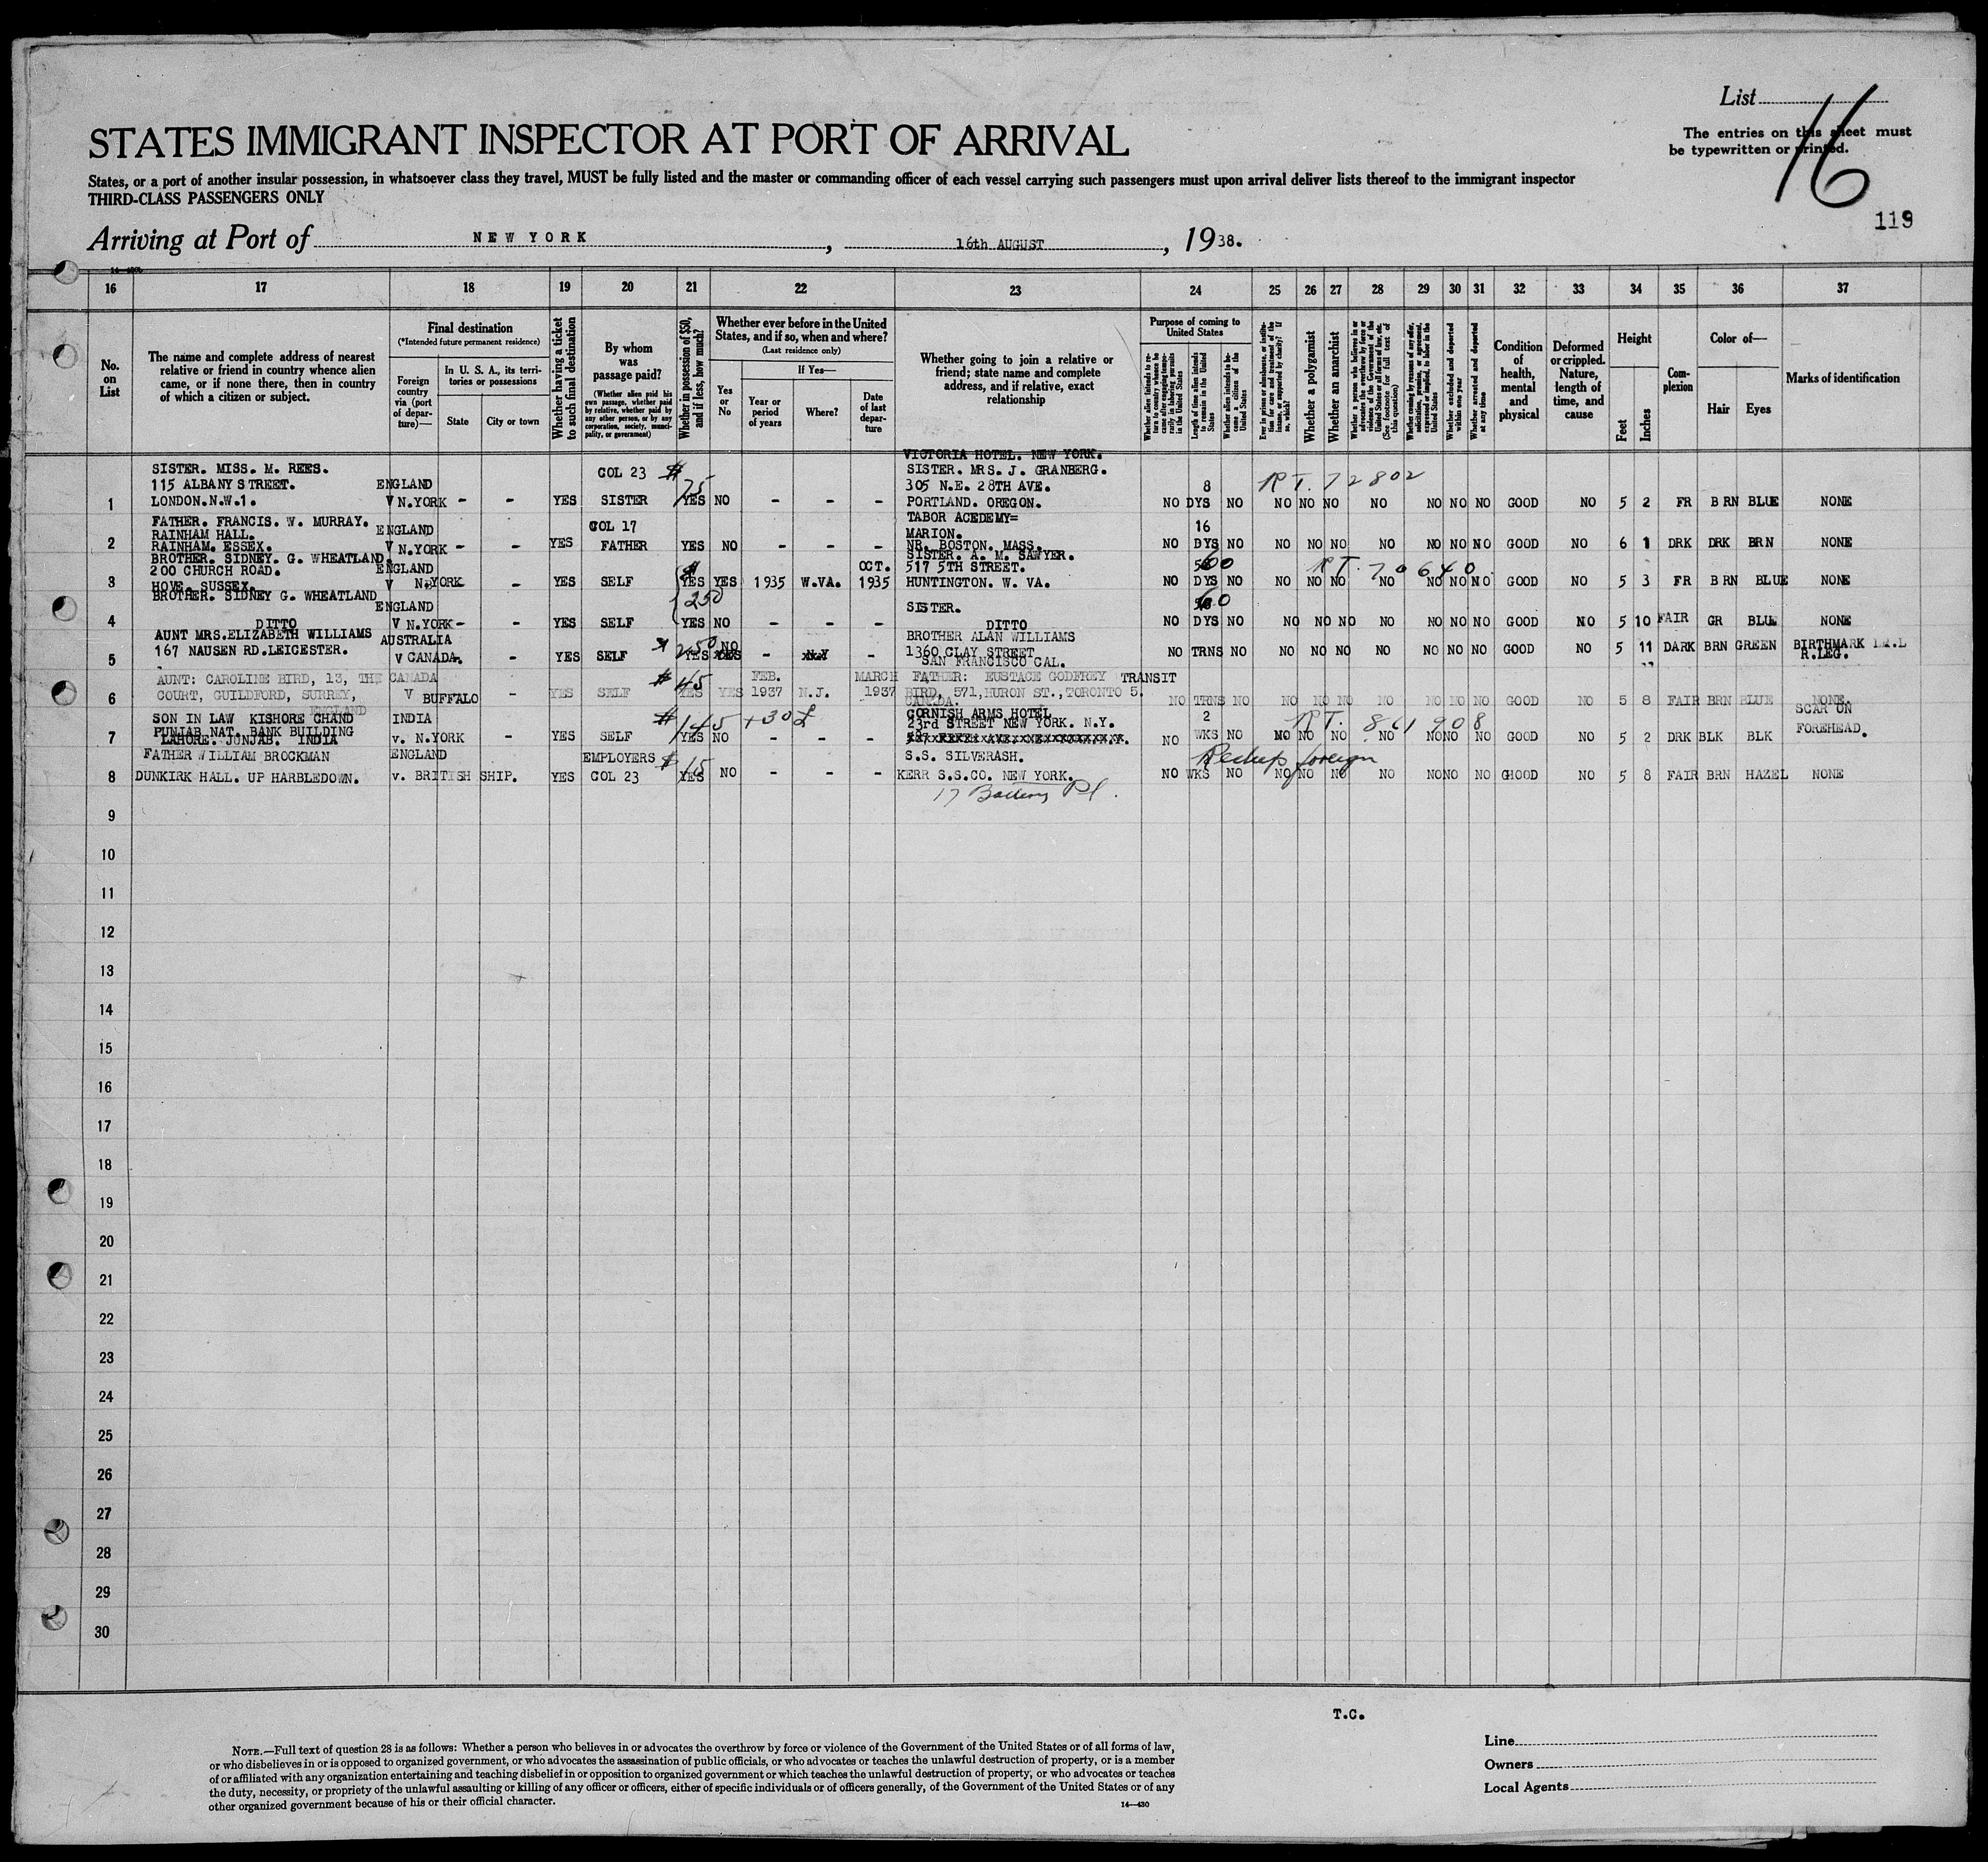 List 16
STATES IMMIGRANT INSPECTOR AT PORT OF ARRIVAL
The entries on this sheet must
be typewritten or printed.
States, or a port of another insular possession, in whatsoever class they travel, MUST be fully listed and the master or commanding officer of each vessel carrying such passengers must upon arrival deliver lists thereof to the immigrant inspector
THIRD-CLASS PASSENGERS ONLY
119
Arriving at Port of NEW YORK, 16th AUGUST, 1938.
16 17 18 19 20 21 22 23 24 25 26 27 28 29 30 31 32 33 34 35 36 37
No. on List
The name and complete address of nearest relative or friend in country whence alien came, or if none there, then in country of which a citizen or subject.
Final destination
(*Intended future permanent residence)
Foreign country via (port of departure)—
In U. S. A., its territories or possessions
State
City or town
Whether having a ticket to such final destination
By whom was passage paid?
(Whether alien paid his own passage, whether paid by relative, whether paid by any other person, or by any corporation, society, municipality, or government)
Whether in possession of $50, and if less, how much?
Whether ever before in the United States, and if so, when and where?
(Last residence only)
Yes or No
If Yes—
Year or period of years
Where?
Date of last departure
Whether going to join a relative or friend; state name and complete address, and if relative, exact relationship
Purpose of coming to United States
Whether alien intends to return to country whence he came after engaging temporarily in laboring pursuits in the United States
Length of time alien intends to remain in the United States
Whether alien intends to become a citizen of the United States
Ever in prison or almshouse, or institution for care and treatment of the insane, or supported by charity? If so, which?
Whether a polygamist
Whether an anarchist
Whether a person who believes in or advocates the overthrow by force or violence of the Government of the United States or all forms of law, etc. (See footnote for full text of this question)
Whether coming by reasons of any offer, solicitation, promise, or agreement, expressed or implied, to labor in the United States
Whether excluded and deported within one year
Whether arrested and deported at any time
Condition of health, mental and physical
Deformed or crippled. Nature, length of time, and cause
Height
Feet
Inches
Complexion
Color of—
Hair
Eyes
Marks of identification
VICTORIA HOTEL. NEW YORK.
SISTER. MISS. M. REES. COL 23 $ SISTER. MRS. J. GRANBERG.
115 ALBANY STREET. ENGLAND 75 305 N.E. 28TH AVE. 8 RT. 72802
1 LONDON.N.W.1. V N.YORK - - YES SISTER YES NO - - - PORTLAND. OREGON. NO DYS NO NO NO NO NO NO NO NO GOOD NO 5 2 FR BRN BLUE NONE
FATHER. FRANCIS. W. MURRAY. TABOR ACEDEMY=
RAINHAM HALL. ENGLAND COL 17 MARION. 16
2 RAINHAM. ESSEX. V N.YORK - - YES FATHER YES NO - - - NR. BOSTON. MASS. NO DYS NO NO NO NO NO NO NO NO GOOD NO 6 1 DRK DRK BRN NONE
BROTHER. SIDNEY. G. WHEATLAND. SISTER. A. M. SAWYER.
200 CHURCH ROAD. ENGLAND $ OCT. 517 5TH STREET. 60 RT. 70640
3 HOVE. SUSSEX. V N.YORK - YES SELF YES YES 1935 W.VA. 1935 HUNTINGTON. W. VA. NO DYS NO NO NO NO NO NO NO NO GOOD NO 5 3 FR BRN BLUE NONE
BROTHER. SIDNEY G. WHEATLAND 250
ENGLAND SISTER. 60
4 DITTO V N.YORK - - YES SELF YES NO - - - DITTO NO DYS NO NO NO NO NO NO NO NO GOOD NO 5 10 FAIR GR BLU NONE
AUNT MRS.ELIZABETH WILLIAMS AUSTRALIA $250 NO BROTHER ALAN WILLIAMS
5 167 NAUSEN RD.LEICESTER. V CANADA. - YES SELF YES YES - N.Y - 1360 CLAY STREET NO TRNS NO NO NO NO NO NO NO NO GOOD NO 5 11 DARK BRN GREEN BIRTHMARK
SAN FRANCISCO CAL. R.LEG.
AUNT: CAROLINE BIRD, 13, THE CANADA $45 FEB. MARCH FATHER: EUSTACE GODFREY TRANSIT
6 COURT, GUILDFORD, SURREY, V BUFFALO - YES SELF YES YES 1937 N.J. 1937 BIRD, 571,HURON ST.,TORONTO 5.
ENGLAND CANADA. NO TRNS NO NO NO NO NO NO NO NO GOOD NO 5 8 FAIR BRN BLUE NONE.
SON IN LAW KISHORE CHAND INDIA $145 +30£ CORNISH ARMS HOTEL 2 RT. 861908 SCAR ON
PUNJAB NAT. BANK BUILDING 23rd STREET NEW YORK. N.Y.
7 LAHORE. JUNJAB. INDIA v. N.YORK - YES SELF YES NO - - - NO WKS NO NO NO NO NO NO NO NO GOOD NO 5 2 DRK BLK BLK FOREHEAD.
FATHER WILLIAM BROCKMAN ENGLAND EMPLOYERS $15 S.S. SILVERASH. Reship foreign
8 DUNKIRK HALL. UP HARBLEDOWN. v. BRITISH SHIP. YES COL 23 YES NO - - - KERR S.S.CO. NEW YORK. NO WKS NO NO NO NO NO NO NO NO GHOOD NO 5 8 FAIR BRN HAZEL NONE
17 Battery Pl.
9
10
11
12
13
14
15
16
17
18
19
20
21
22
23
24
25
26
27
28
29
30
T.C.
NOTE.—Full text of question 28 is as follows: Whether a person who believes in or advocates the overthrow by force or violence of the Government of the United States or of all forms of law,
or who disbelieves in or is opposed to organized government, or who advocates the assassination of public officials, or who advocates or teaches the unlawful destruction of property, or is a member
of or affiliated with any organization entertaining and teaching disbelief in or opposition to organized government or which teaches the unlawful destruction of property, or who advocates or teaches
the duty, necessity, or propriety of the unlawful assaulting or killing of any officer or officers, either of specific individuals or of officers generally, of the Government of the United States or of any
other organized government because of his or their official character.
14—430
Line
Owners
Local Agents